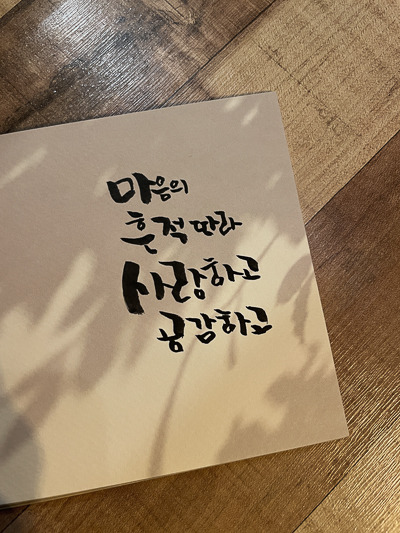 마음의
흔적 따라
사랑하고
공감하고